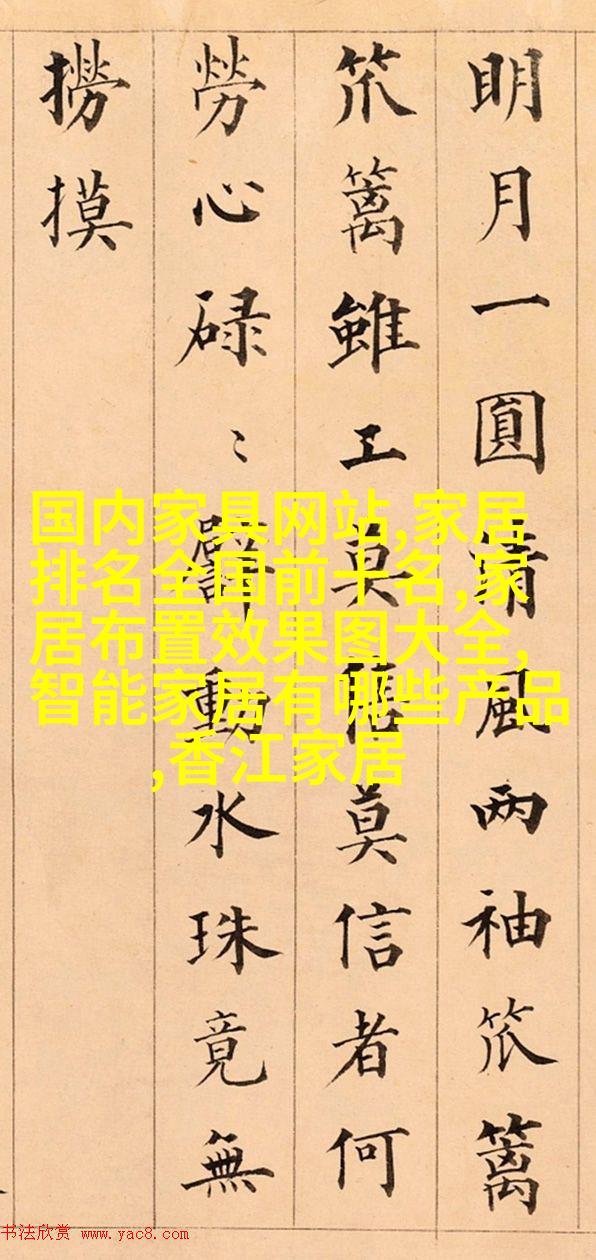 明月一圓清風两袖笊篱
笊篱雖工莫莫信者何
勞心碌〻動水珠竟無
撈摸
国内家具网站,家居
排名全国前十名,家
居布置效果图大全,
智能家居有哪些产品
,香江家居
书法欣赏 www.yac8.com